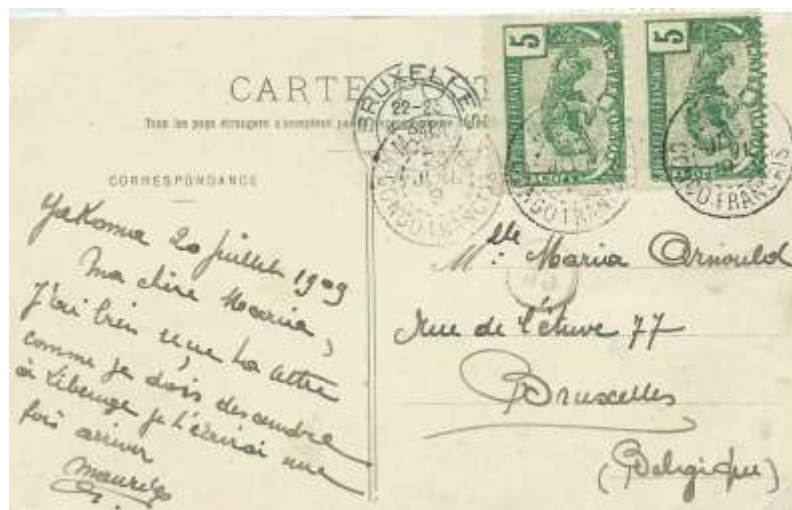 CARTE
Tous les pays étrangers n'acceptent pas
CORRESPONDANCE
BRUXELLES
22-23
CONGO FRANÇAIS
5
5
CONGO FRANÇAIS
CONGO FRANÇAIS
CONGO FRANÇAIS
CONGO FRANÇAIS
Yakoma 20 juillet 1909
Ma chère Maria,
J'ai bien reçue ta lettre
comme je dois descendre
à Libenge je t'écrirai une
fois arriver
Maurice
Mlle Maria Arnould
Rue de l'étuve 77
Bruxelles
(Belgique)